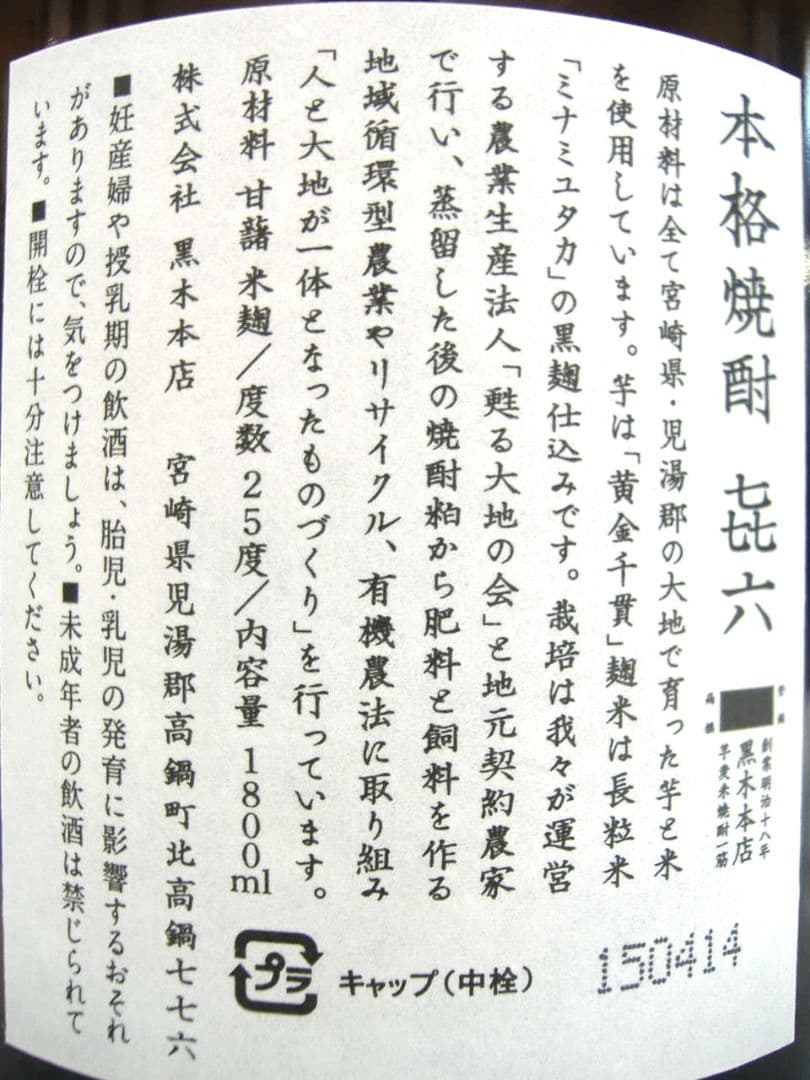 本格焼酎 㐂六
登録
商標
創業明治十八年
黒木本店
芋麦米焼酎一筋
原材料は全て宮崎県・児湯郡の大地で育った芋と米
を使用しています。芋は「黄金千貫」麹米は長粒米
「ミナミユタカ」の黒麹仕込みです。栽培は我々が運営
する農業生産法人「甦る大地の会」と地元契約農家
で行い、蒸留した後の焼酎粕から肥料と飼料を作る
地域循環型農業やリサイクル、有機農法に取り組み
「人と大地が一体となったものづくり」を行っています。
原材料 甘藷 米麹/度数 25度/内容量 1800ml
株式会社 黒木本店 宮崎県児湯郡高鍋町北高鍋七七六
■妊産婦や授乳期の飲酒は、胎児・乳児の発育に影響するおそれ
がありますので、気をつけましょう。■未成年者の飲酒は禁じられて
います。■開栓には十分注意してください。
プラ
キャップ(中栓)
150414